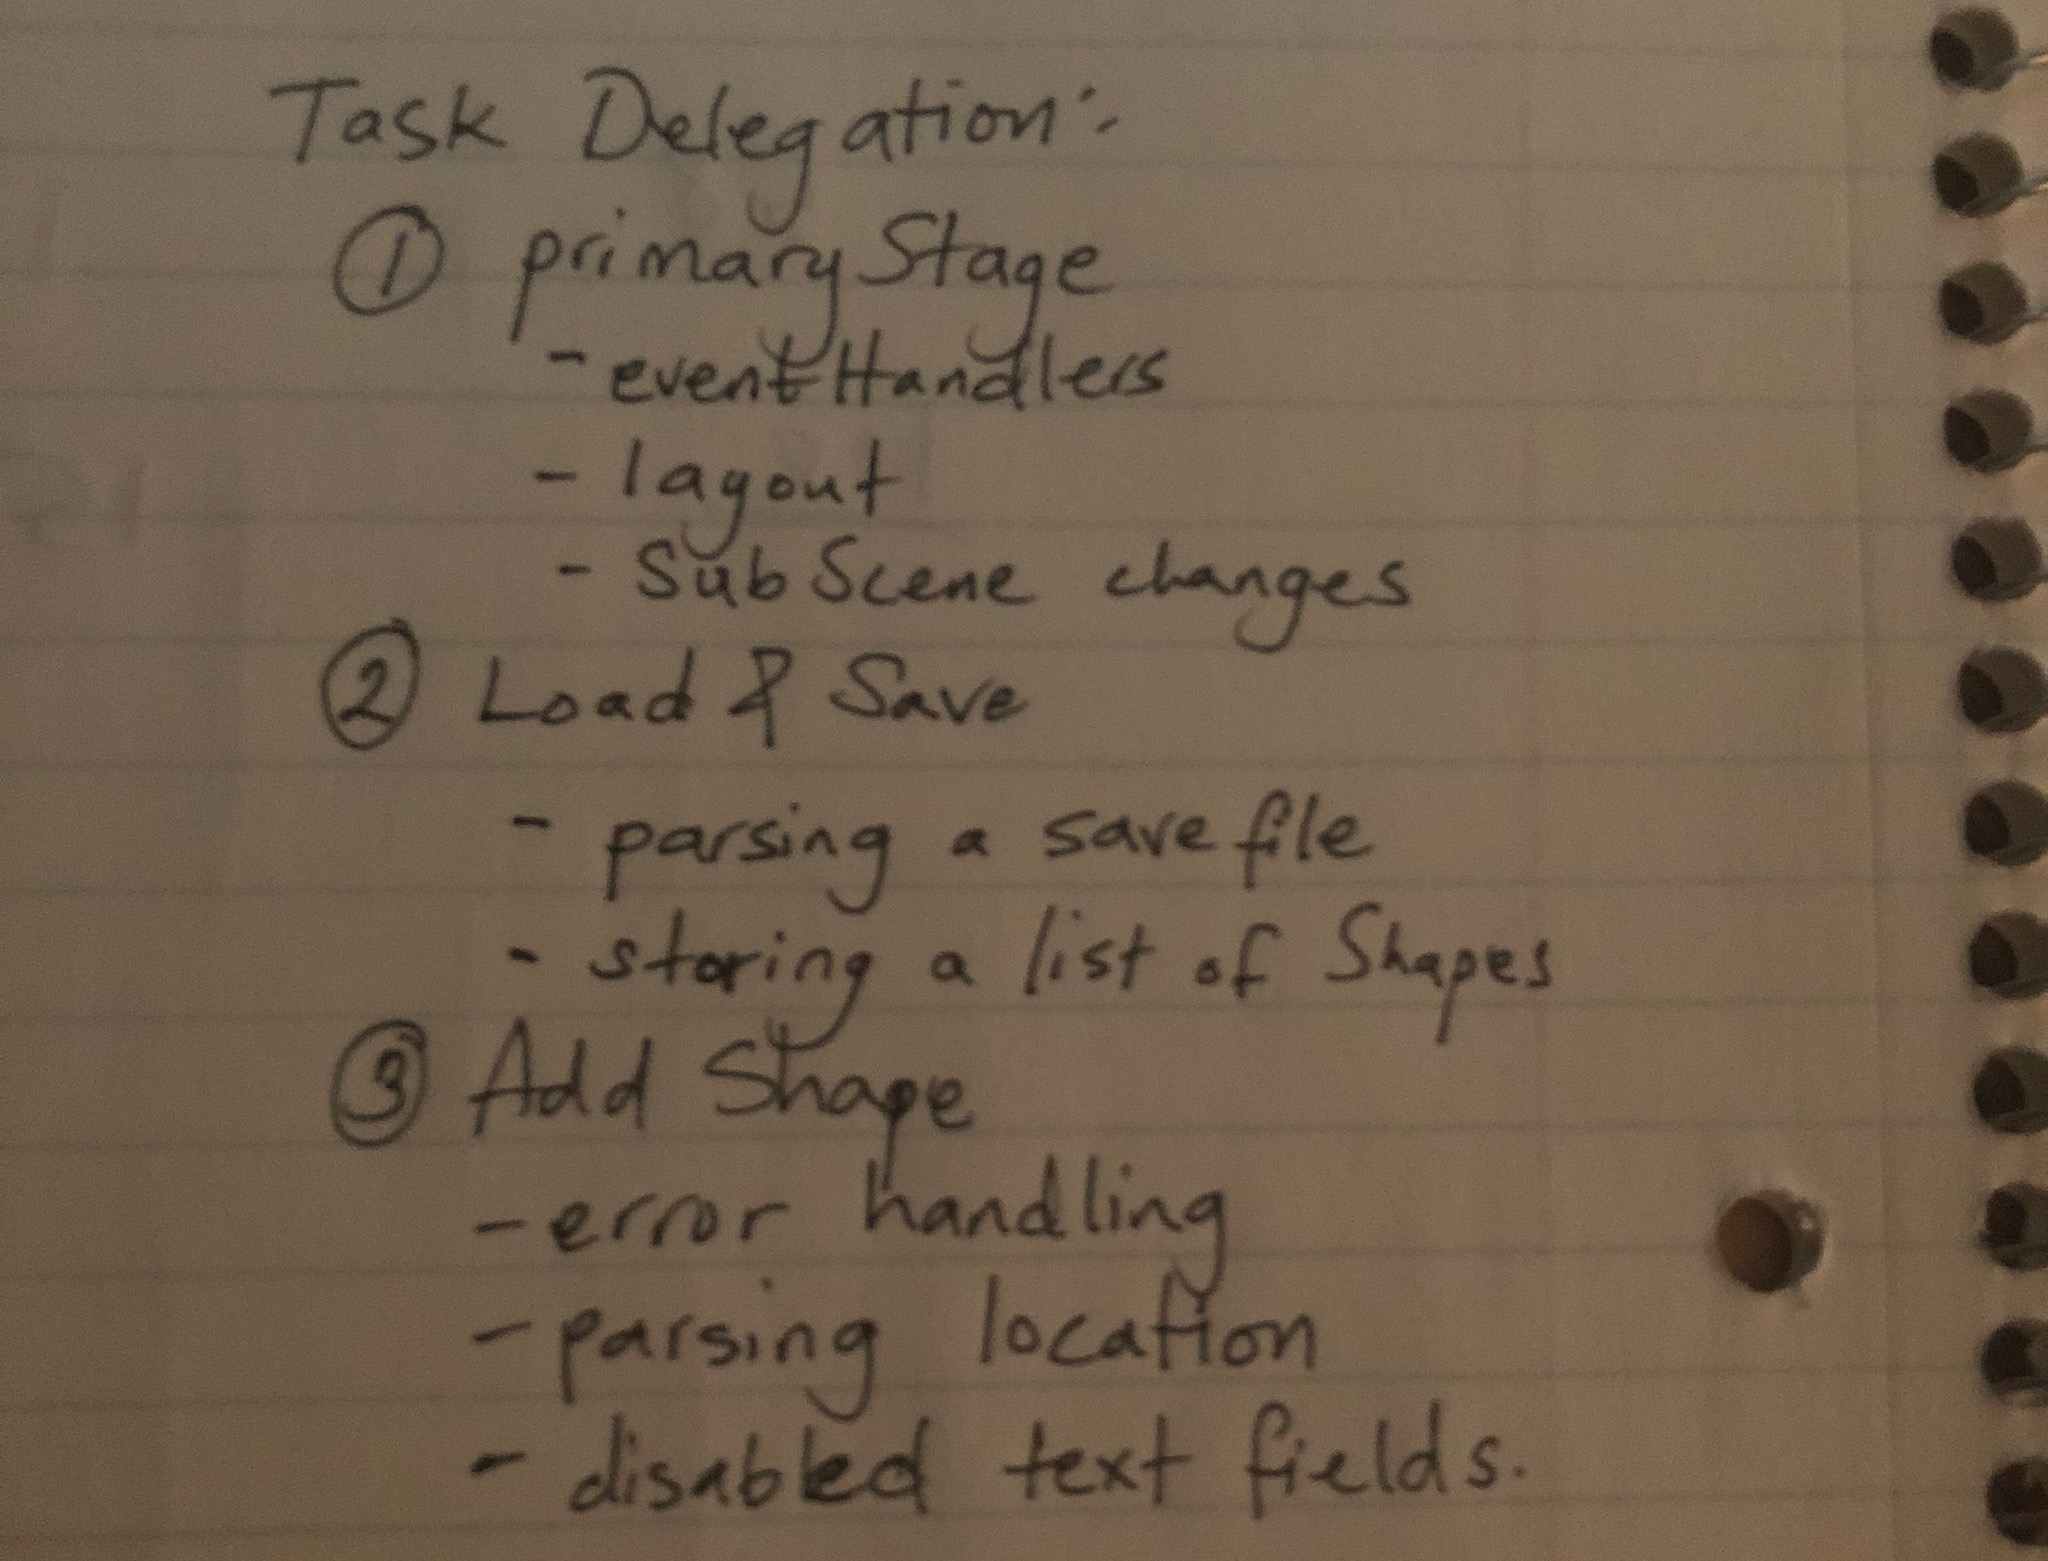 Task Delegation:
① primaryStage
- eventHandlers
- layout
- SubScene changes
② Load & Save
- parsing a save file
- storing a list of Shapes
③ Add Shape
- error handling
- parsing location
- disabled text fields.